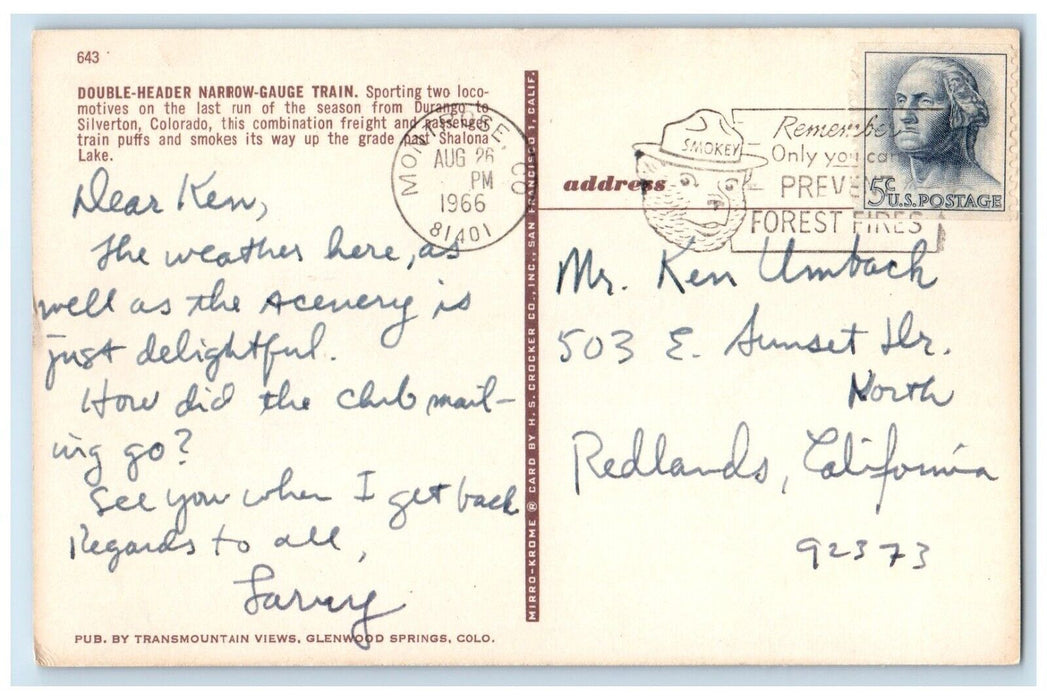 643
DOUBLE-HEADER NARROW-GAUGE TRAIN. Sporting two loco-
motives on the last run of the season from Durango to
Silverton, Colorado, this combination freight and passenger
train puffs and smokes its way up the grade past Shalona
Lake.
MONTROSE, CO
AUG 26
PM
1966
81401
SMOKEY
Remember
Only you can
PREVENT
FOREST FIRES
5c
U.S. POSTAGE
address
Dear Ken,
The weather here, as
well as the scenery is
just delightful.
How did the club mail-
ing go?
See you when I get back
Regards to all,
Larry
Mr. Ken Umbach
503 E. Sunset Dr.
North
Redlands, California
92373
MIRRO-KROME ® CARD BY H. S. CROCKER CO., INC., SAN FRANCISCO 1, CALIF.
PUB. BY TRANSMOUNTAIN VIEWS, GLENWOOD SPRINGS, COLO.